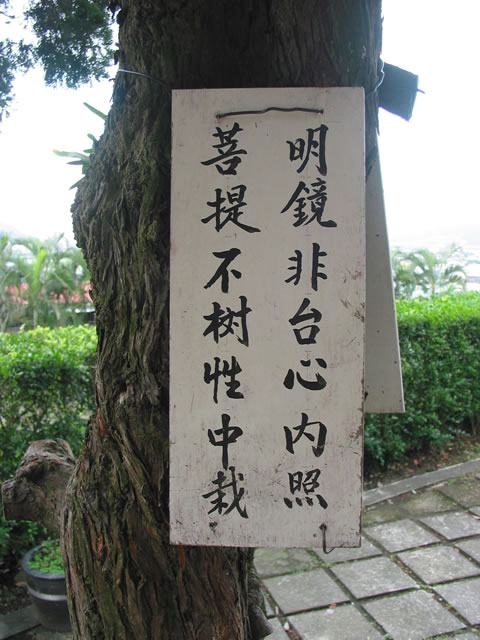 明鏡非台心内照
菩提不树性中栽